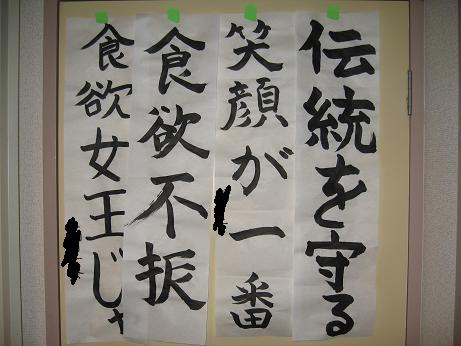 伝統を守る
笑顔が一番
食欲不振
食欲女王じゃ